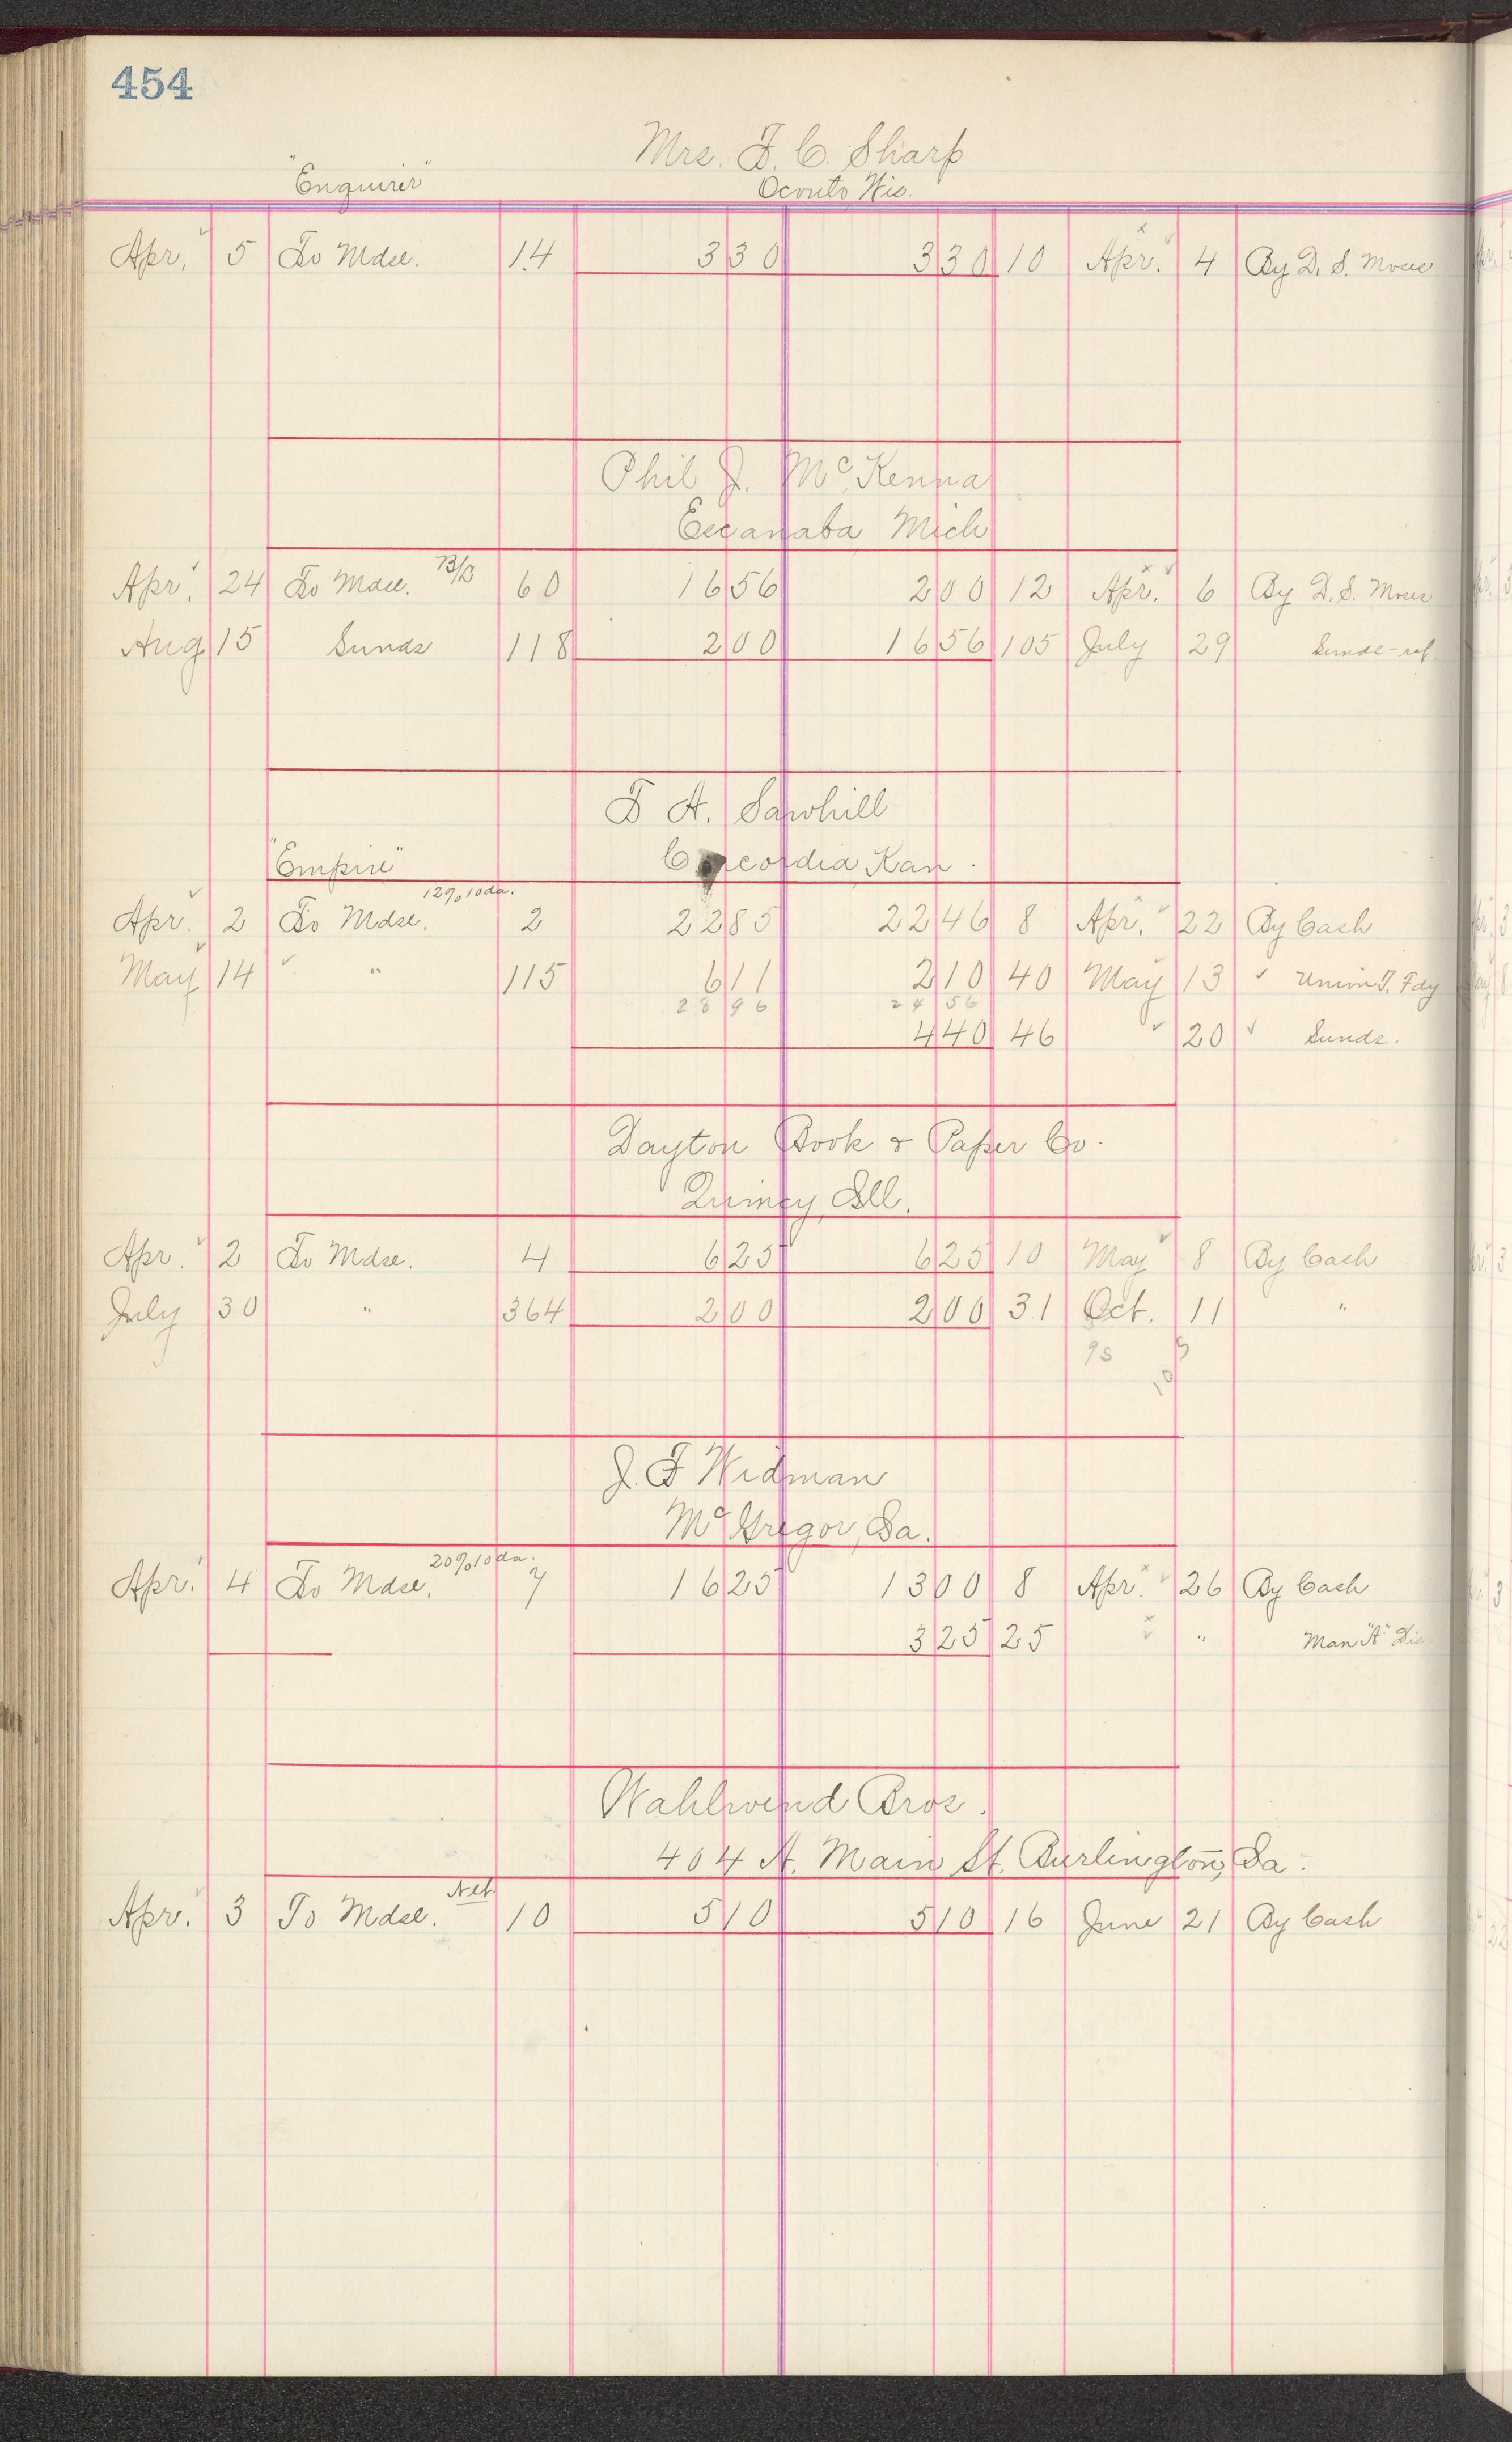 454
Mrs. F. C. Sharp
"Enquirer"
Oconto Wis.
Apr. 5 To Mdse. 14 3 30 3 30 10 Apr. 4 By D. S. Morse
Phil J. McKenna
Escanaba Mich
Apr. 24 To Mdse. 60 16 56 2 00 12 Apr. 6 By D. S. Morse
Aug 15 Sunds 118 2 00 16 56 105 July 29 Sunds-ref.
F A. Sawhill
"Empire" Concordia Kan.
12% 10 da.
Apr. 2 To Mdse. 2 22 85 22 46 8 Apr. 22 By Cash
May 14 " 115 6 11 2 10 40 May 13 Union
28 96 24 56
4 40 46 20 Sunds.
Dayton Book & Paper Co.
Quincy, Ill.
Apr. 2 To Mdse. 4 6 25 6 25 10 May 8 By Cash
July 30 " 364 2 00 2 00 31 Oct. 11 "
J. F Widman
McGregor, Ia.
20% 10 da.
Apr. 4 To Mdse. 7 16 25 13 00 8 Apr. 26 By Cash
3 25 25 " Man "A" Dis
Wahlwend Bros.
404 N. Main St. Burlington, Ia.
Net
Apr. 3 To Mdse. 10 5 10 5 10 16 June 21 By Cash